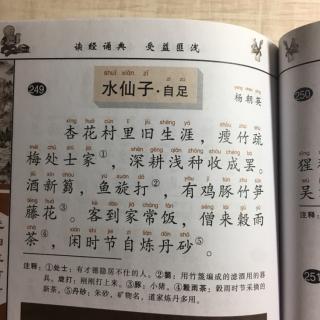 读经诵典 受益匪浅
249
shuǐ xiān zǐ zì zú
水仙子·自足
杨朝英
杏花村里旧生涯，瘦竹疏
梅处士家①，深耕浅种收成罢。
酒新篘，鱼旋打②，有鸡豚竹笋
藤花③。客到家常饭，僧来穀雨
茶④，闲时节自炼丹砂⑤。
注释：①处士：有才德隐居不仕的人。②篘：用竹篾编成的滤酒用的器
具。旋打：刚刚打上来。③豚：小猪。④穀雨茶：穀雨时节采摘的
新茶。⑤丹砂：朱砂，矿物名，道家炼丹多用。
250
猩
吴
251